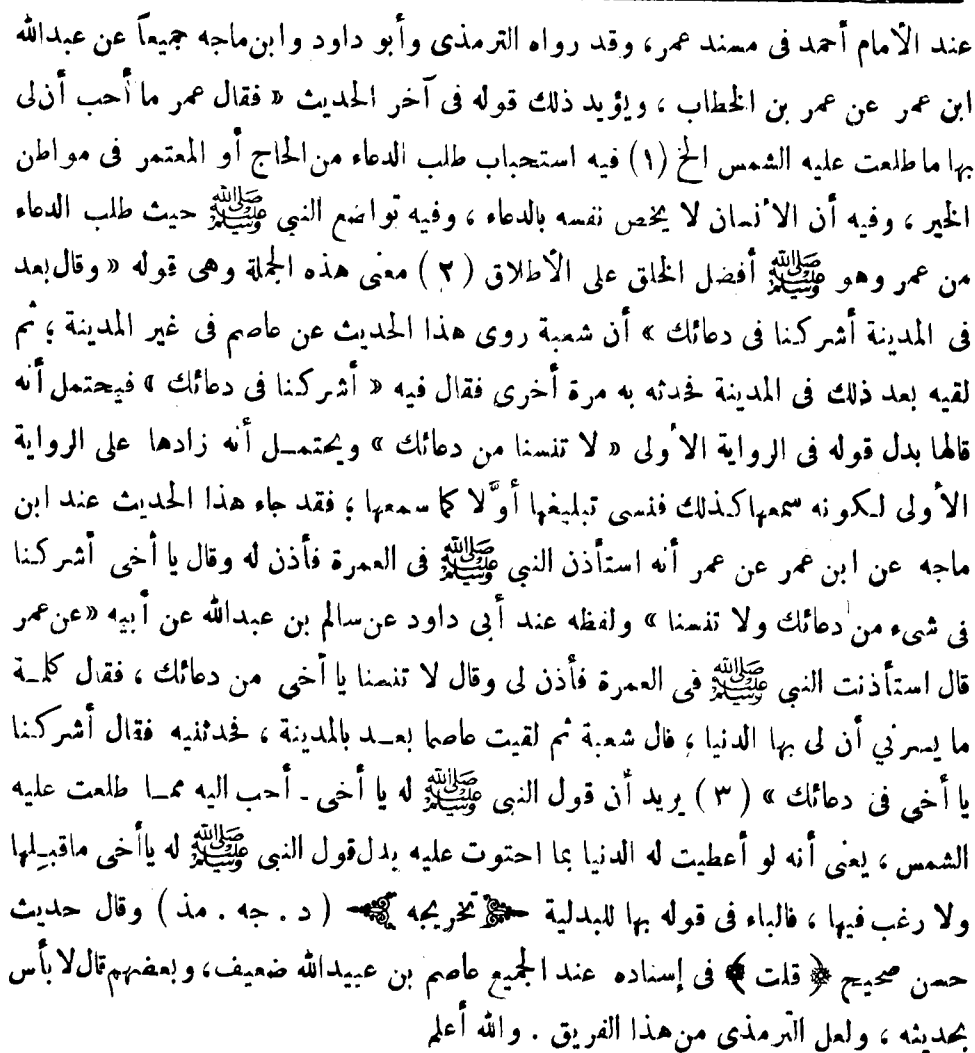 عند الأمام أحمد فى مسند عمر، وقد رواه الترمذى وأبو داود وابن ماجه جميعاً عن عبدالله
ابن عمر عن عمر بن الخطاب ، ويؤيد ذلك قوله فى آخر الحديث « فقال عمر ما أحب أن لى
بها ما طلعت عليه الشمس الخ (١) فيه استحباب طلب الدعاء من الحاج أو المعتمر فى مواطن
الخير ، وفيه أن الأنسان لا يخص نفسه بالدعاء ، وفيه تواضع النبى ﷺ حيث طلب الدعاء
من عمر وهو ﷺ أفضل الخلق على الأطلاق (٢) معنى هذه الجملة وهى قوله « وقال بعد
فى المدينة أشركنا فى دعائك » أن شعبة روى هذا الحديث عن عاصم فى غير المدينة ؛ ثم
لقيه بعد ذلك فى المدينة فحدثه به مرة أخرى فقال فيه « أشركنا فى دعائك » فيحتمل أنه
قالها بدل قوله فى الرواية الأولى « لا تنسنا من دعائك » ويحتمـل أنه زادها على الرواية
الأولى لكونه سمعها كذلك فنسى تبليغها أوَّلا كما سمعها ؛ فقد جاء هذا الحديث عند ابن
ماجه عن ابن عمر عن عمر أنه استأذن النبى ﷺ فى العمرة فأذن له وقال يا أخى أشركنا
فى شىء من دعائك ولا تنسنا » ولفظه عند أبى داود عن سالم بن عبدالله عن أبيه «عن عمر
قال استأذنت النبى ﷺ فى العمرة فأذن لى وقال لا تنسنا يا أخى من دعائك ، فقال كلمـة
ما يسرني أن لى بها الدنيا ؛ قال شعبة ثم لقيت عاصما بعـد بالمدينة ، فحدثنيه فقال أشركنا
يا أخى فى دعائك » (٣) يريد أن قول النبى ﷺ له يا أخى ـ أحب اليه ممـا طلعت عليه
الشمس ، يعنى أنه لو أعطيت له الدنيا بما احتوت عليه بدل قول النبى ﷺ له ياأخى ماقبـلها
ولا رغب فيها ، فالباء فى قوله بها للبدلية تخريجه ( د . جه . مذ ) وقال حديث
حسن صحيح ﴿ قلت ﴾ فى إسناده عند الجميع عاصم بن عبيدالله ضعيف، وبعضهم قال لا بأس
بحديثه ، ولعل الترمذى من هذا الفريق . والله أعلم